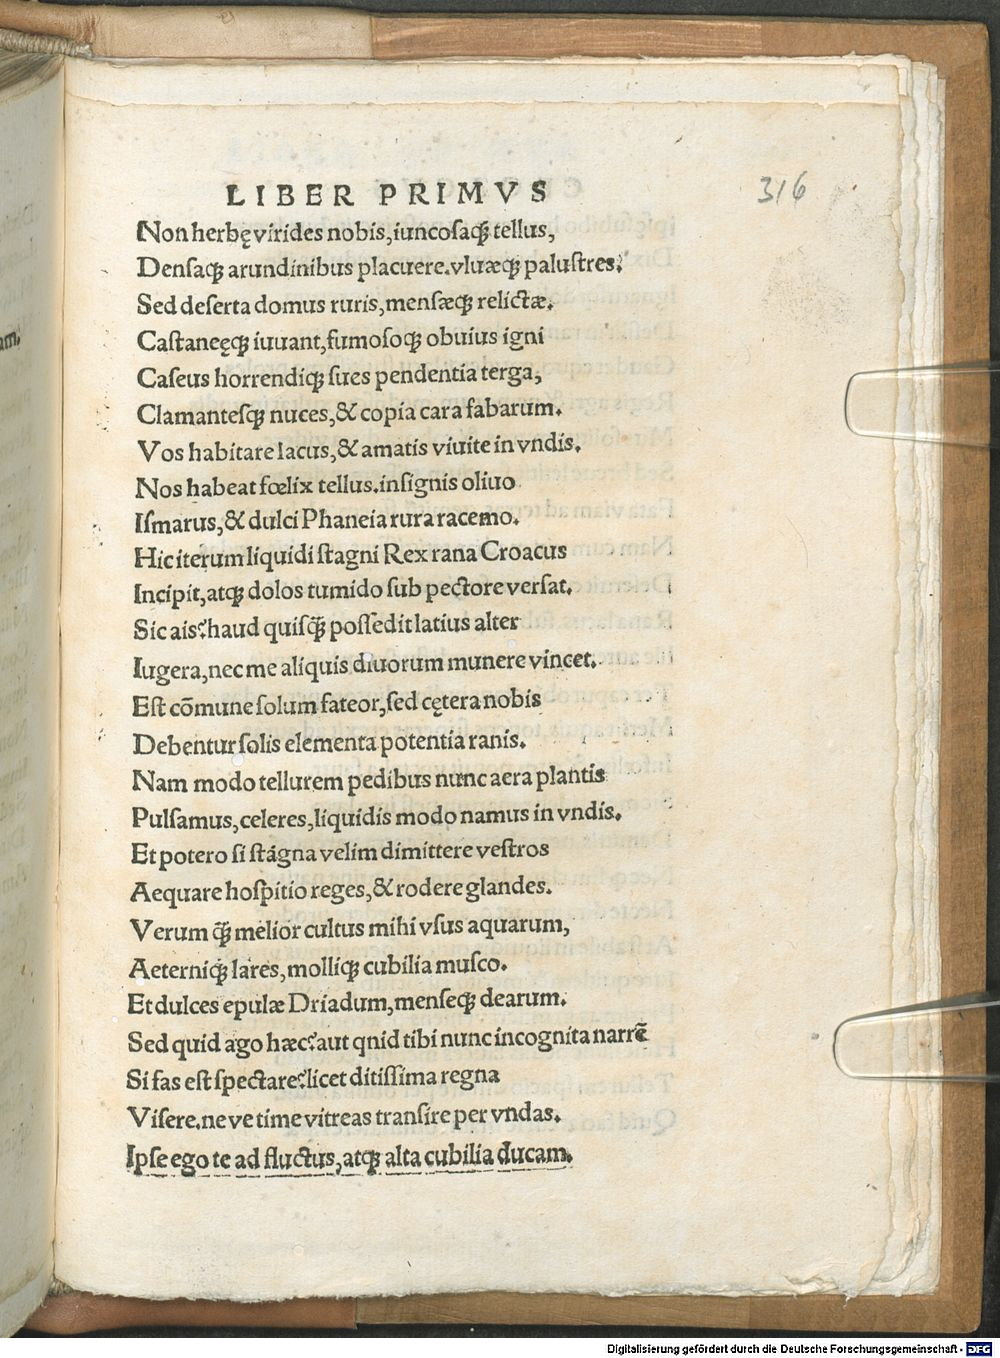 LIBER PRIMVS
316
Non herbę virides nobis, iuncosaqꝫ tellus,
Densaqꝫ arundinibus placuere. vluæqꝫ palustres:
Sed deserta domus ruris, mensæqꝫ relictæ.
am,
Castaneęqꝫ iuuant, fumosoqꝫ obuius igni
Caseus horrendiqꝫ sues pendentia terga,
Clamantesqꝫ nuces, & copia cara fabarum.
Vos habitare lacus, & amatis viuite in vndis.
Nos habeat fœlix tellus. insignis oliuo
Ismarus, & dulci Phaneia rura racemo.
Hic iterum liquidi stagni Rex rana Croacus
Incipit, atqꝫ dolos tumido sub pectore versat.
Sic ais? haud quisqꝫ̃ possedit latius alter
Iugera, nec me aliquis diuorum munere vincet.
Est cõmune solum fateor, sed cętera nobis
Debentur solis elementa potentia ranis.
Nam modo tellurem pedibus nunc aera plantis
Pulsamus, celeres, liquidis modo namus in vndis.
Et potero si stagna velim dimittere vestros
Aequare hospitio reges, & rodere glandes.
Verum qꝫ̃ melior cultus mihi vsus aquarum,
Aeterniqꝫ lares, molliqꝫ cubilia musco.
Et dulces epulæ Driadum, menseqꝫ dearum.
Sed quid ago hæc? aut qnid tibi nunc incognita narrẽ
Si fas est spectare? licet ditissima regna
Visere. neve time vitreas transire per vndas.
Ipse ego te ad fluctus, atqꝫ alta cubilia ducam.
Digitalisierung gefördert durch die Deutsche Forschungsgemeinschaft - DFG